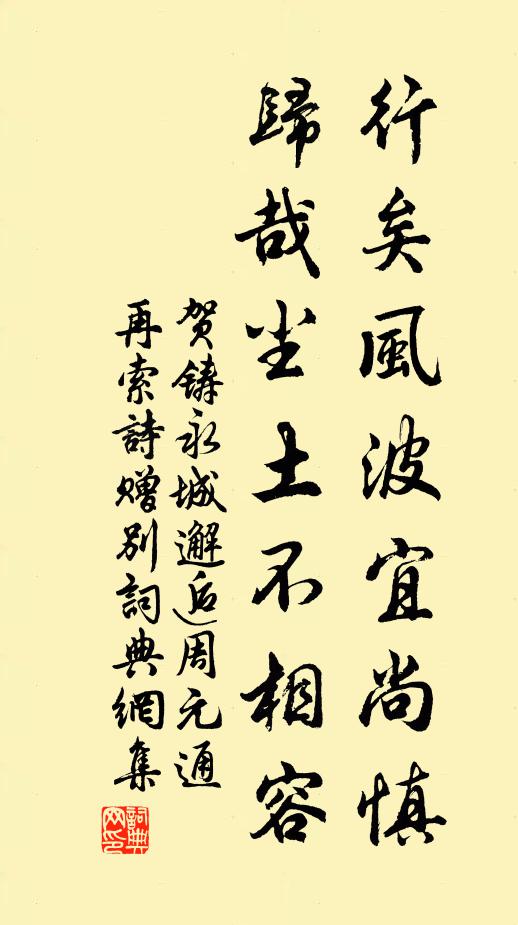 行矣風波宜尚慎
歸哉尘土不相容
贺鑄永城邂逅周元通
再索詩贈別詞典網集
詞典
网印